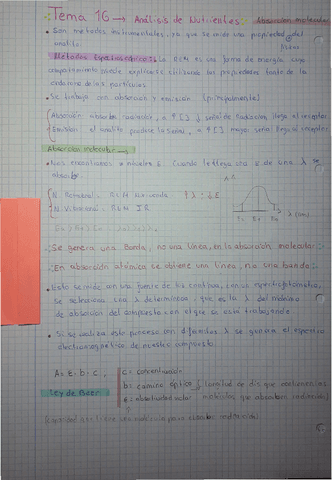 Tema 16 → Análisis de Nutrientes Absorción molecular
• Son métodos instrumentales, ya que se mide una propiedad del
analito.
Métodos Espectroscópicos: La REM es una forma de energía cuyo
comportamiento puede explicarse utilizando las propiedades tanto de la
onda como de las partículas
• Se trabaja con absorción y emisión. (principalmente)
Absorción: absorbe radiación, a ↑[ ] ↓ señal de radiación llega al receptor
Emisión: el analito produce la señal, a ↑[ ] mayor señal llega al receptor
Absorción molecular
• Nos encontramos niveles E. Cuando le llega una E de una λ se
absorbe.
N. Rotacional: REM
N. Vibracional: REM IR
↑λ : ↓E
λ (nm)
• Se genera una Banda, no una línea, en la absorción molecular
• En absorción atómica se obtiene una línea, no una banda.
• Esto se mide con una fuente de luz continua, con el espectrofotómetro,
se selecciona una λ determinada, que es la λ del máximo
de absorción del compuesto con el que se está trabajando
• Si se realiza este proceso con diferentes λ se genera el espectro
electromagnético de nuestro compuesto.
A = ε · b · c ,
c = concentración
b = camino óptico (longitud de dis. que contienen las
Ley de Beer
ε = absortividad molar moléculas que absorben radiación)